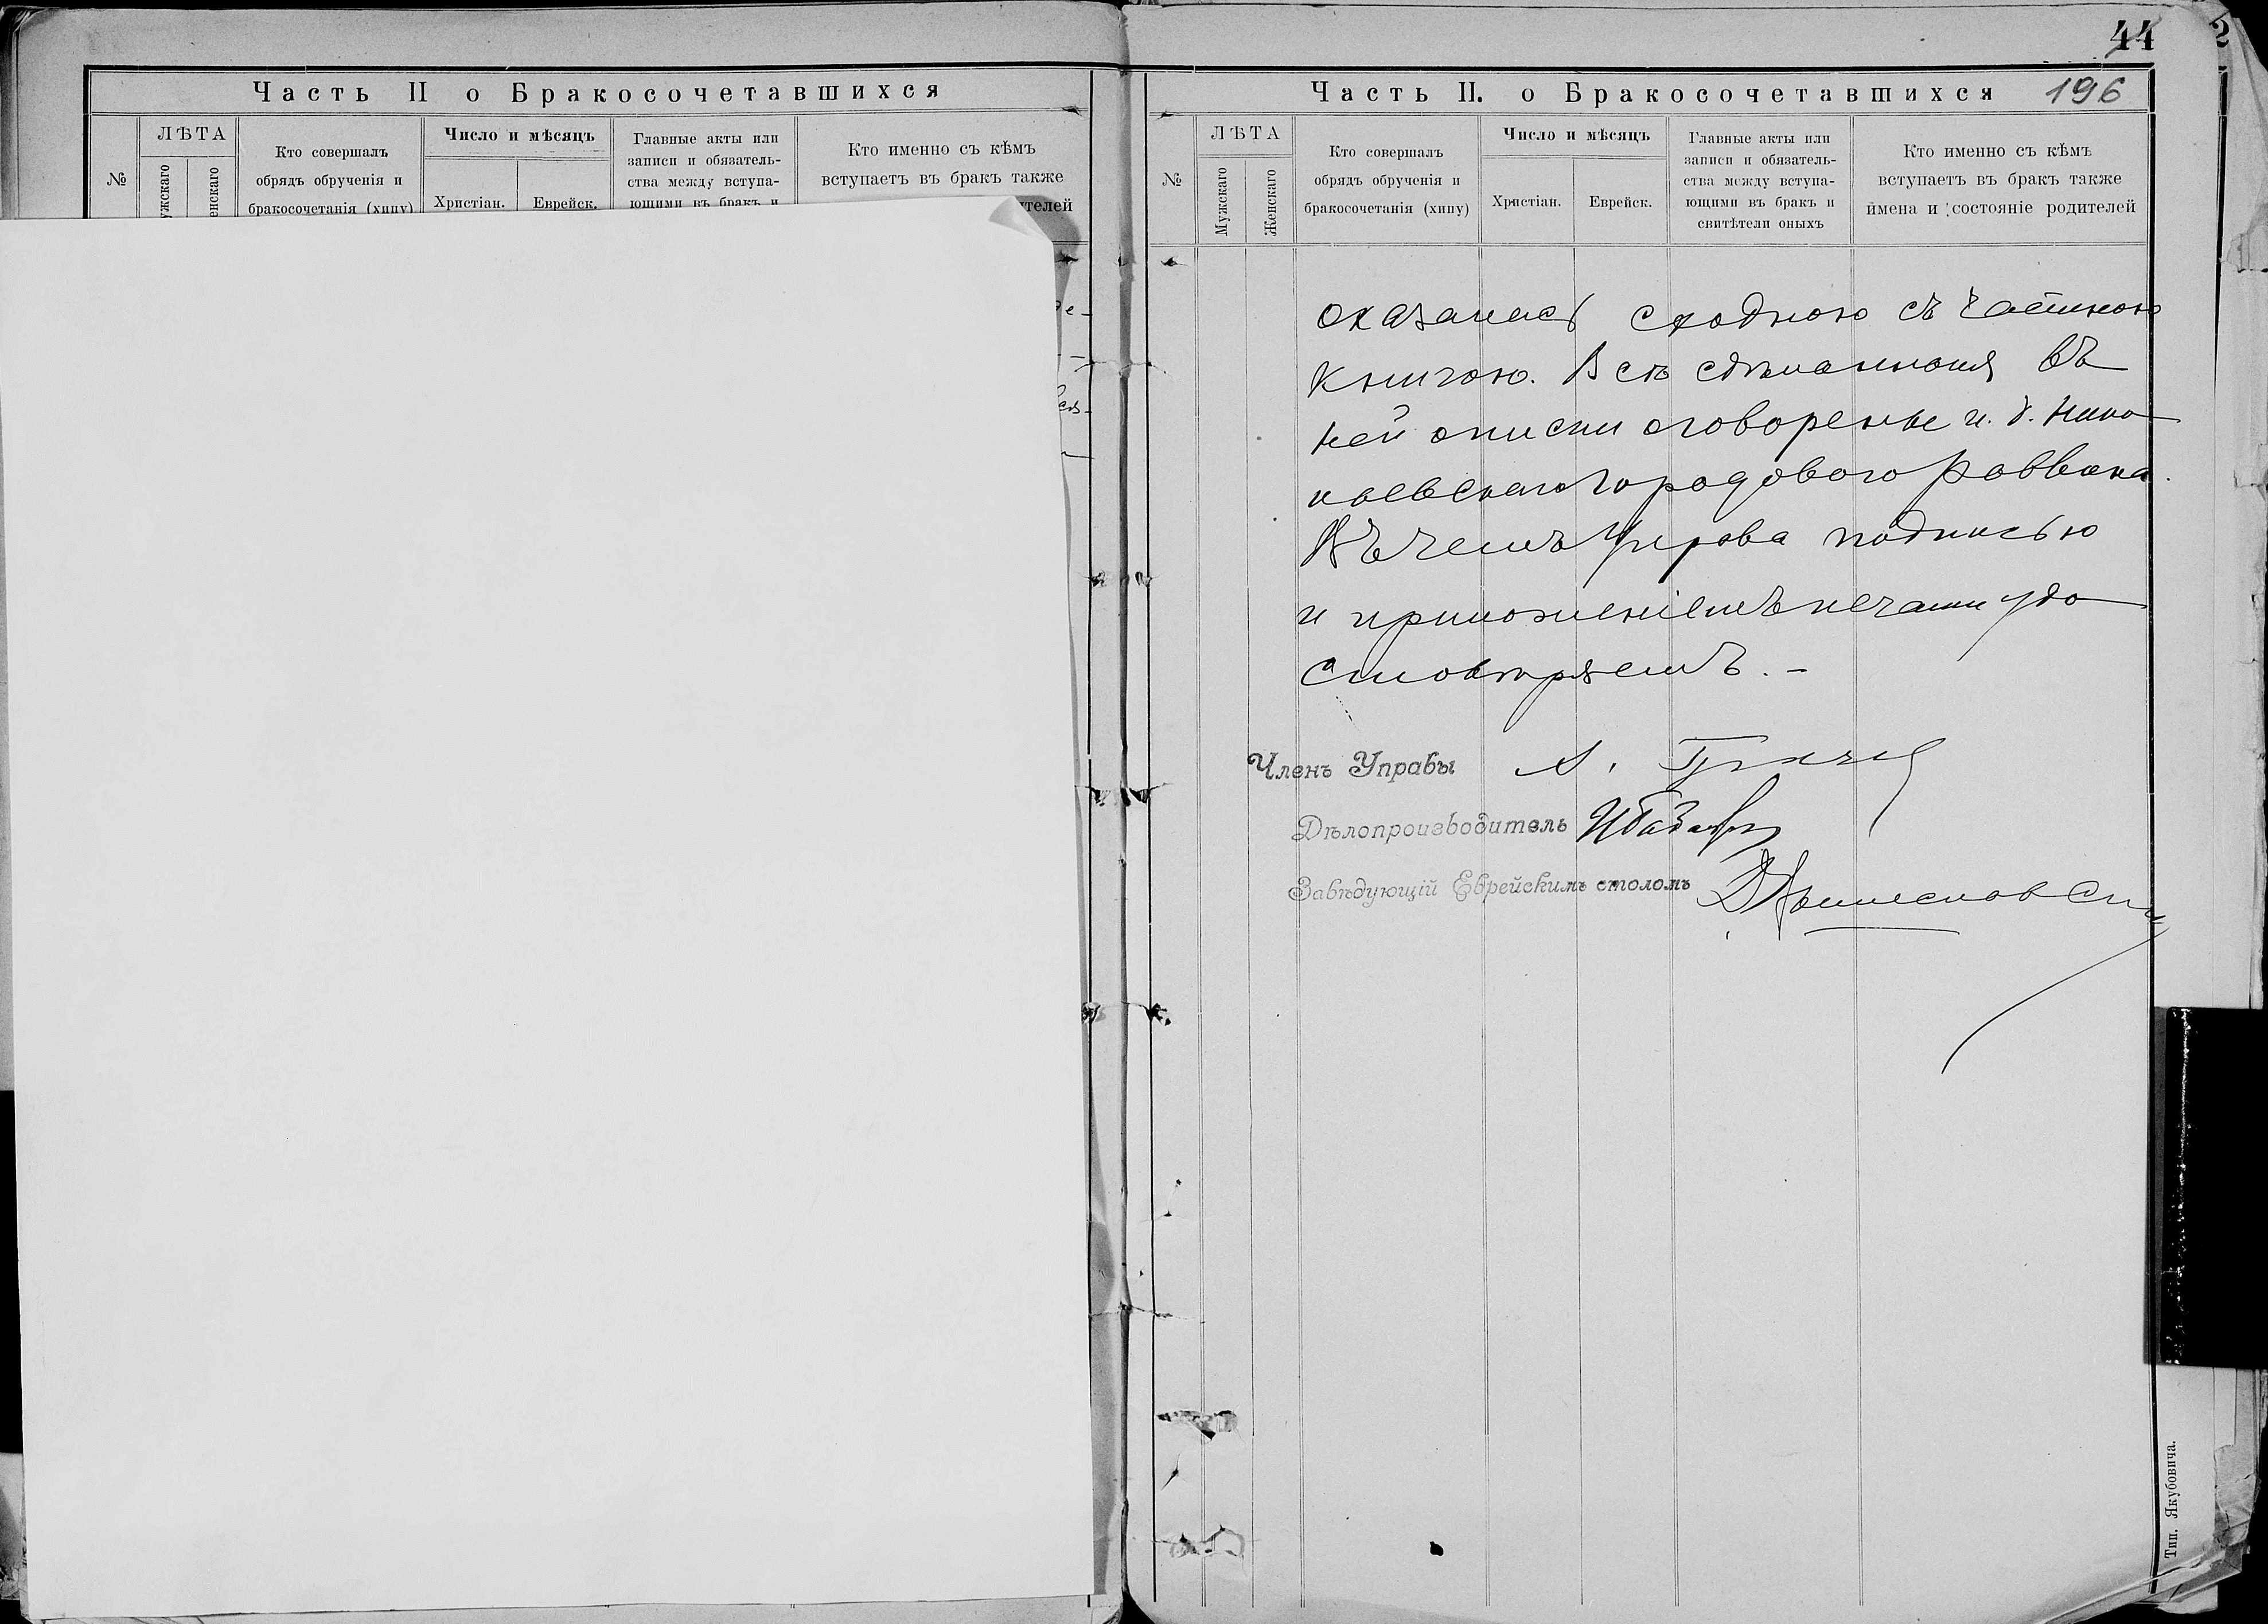 44
2
Часть II о Бракосочетавшихся
№
ЛѢТА
ужскаго
енскаго
Кто совершалъ
обрядъ обрученія и
бракосочетанія (хипу)
Число и мѣсяцъ
Христіан.
Еврейск.
Главные акты или
записи и обязатель-
ства между вступа-
ющими въ бракъ и
Кто именно съ кѣмъ
вступаетъ въ бракъ также
ителей
Часть II. о Бракосочетавшихся 196
№
ЛѢТА
Мужскаго
Женскаго
Кто совершалъ
обрядъ обрученія и
бракосочетанія (хипу)
Число и мѣсяцъ
Христіан.
Еврейск.
Главные акты или
записи и обязатель-
ства между вступа-
ющими въ бракъ и
свитѣтели оныхъ
Кто именно съ кѣмъ
вступаетъ въ бракъ также
имена и состояніе родителей
оказалась сходною съ частною
книгою. Всѣ сдѣланныя въ
ней описки оговорены и. д. Нико
лаевскаго Городового Раввина.
Въ чемъ Управа подписью
и приложеніемъ печати удо
стовѣряетъ. –
Членъ Управы
Дѣлопроизводитель
Завѣдующій Еврейскимъ столомъ
Тип. Якубовича.